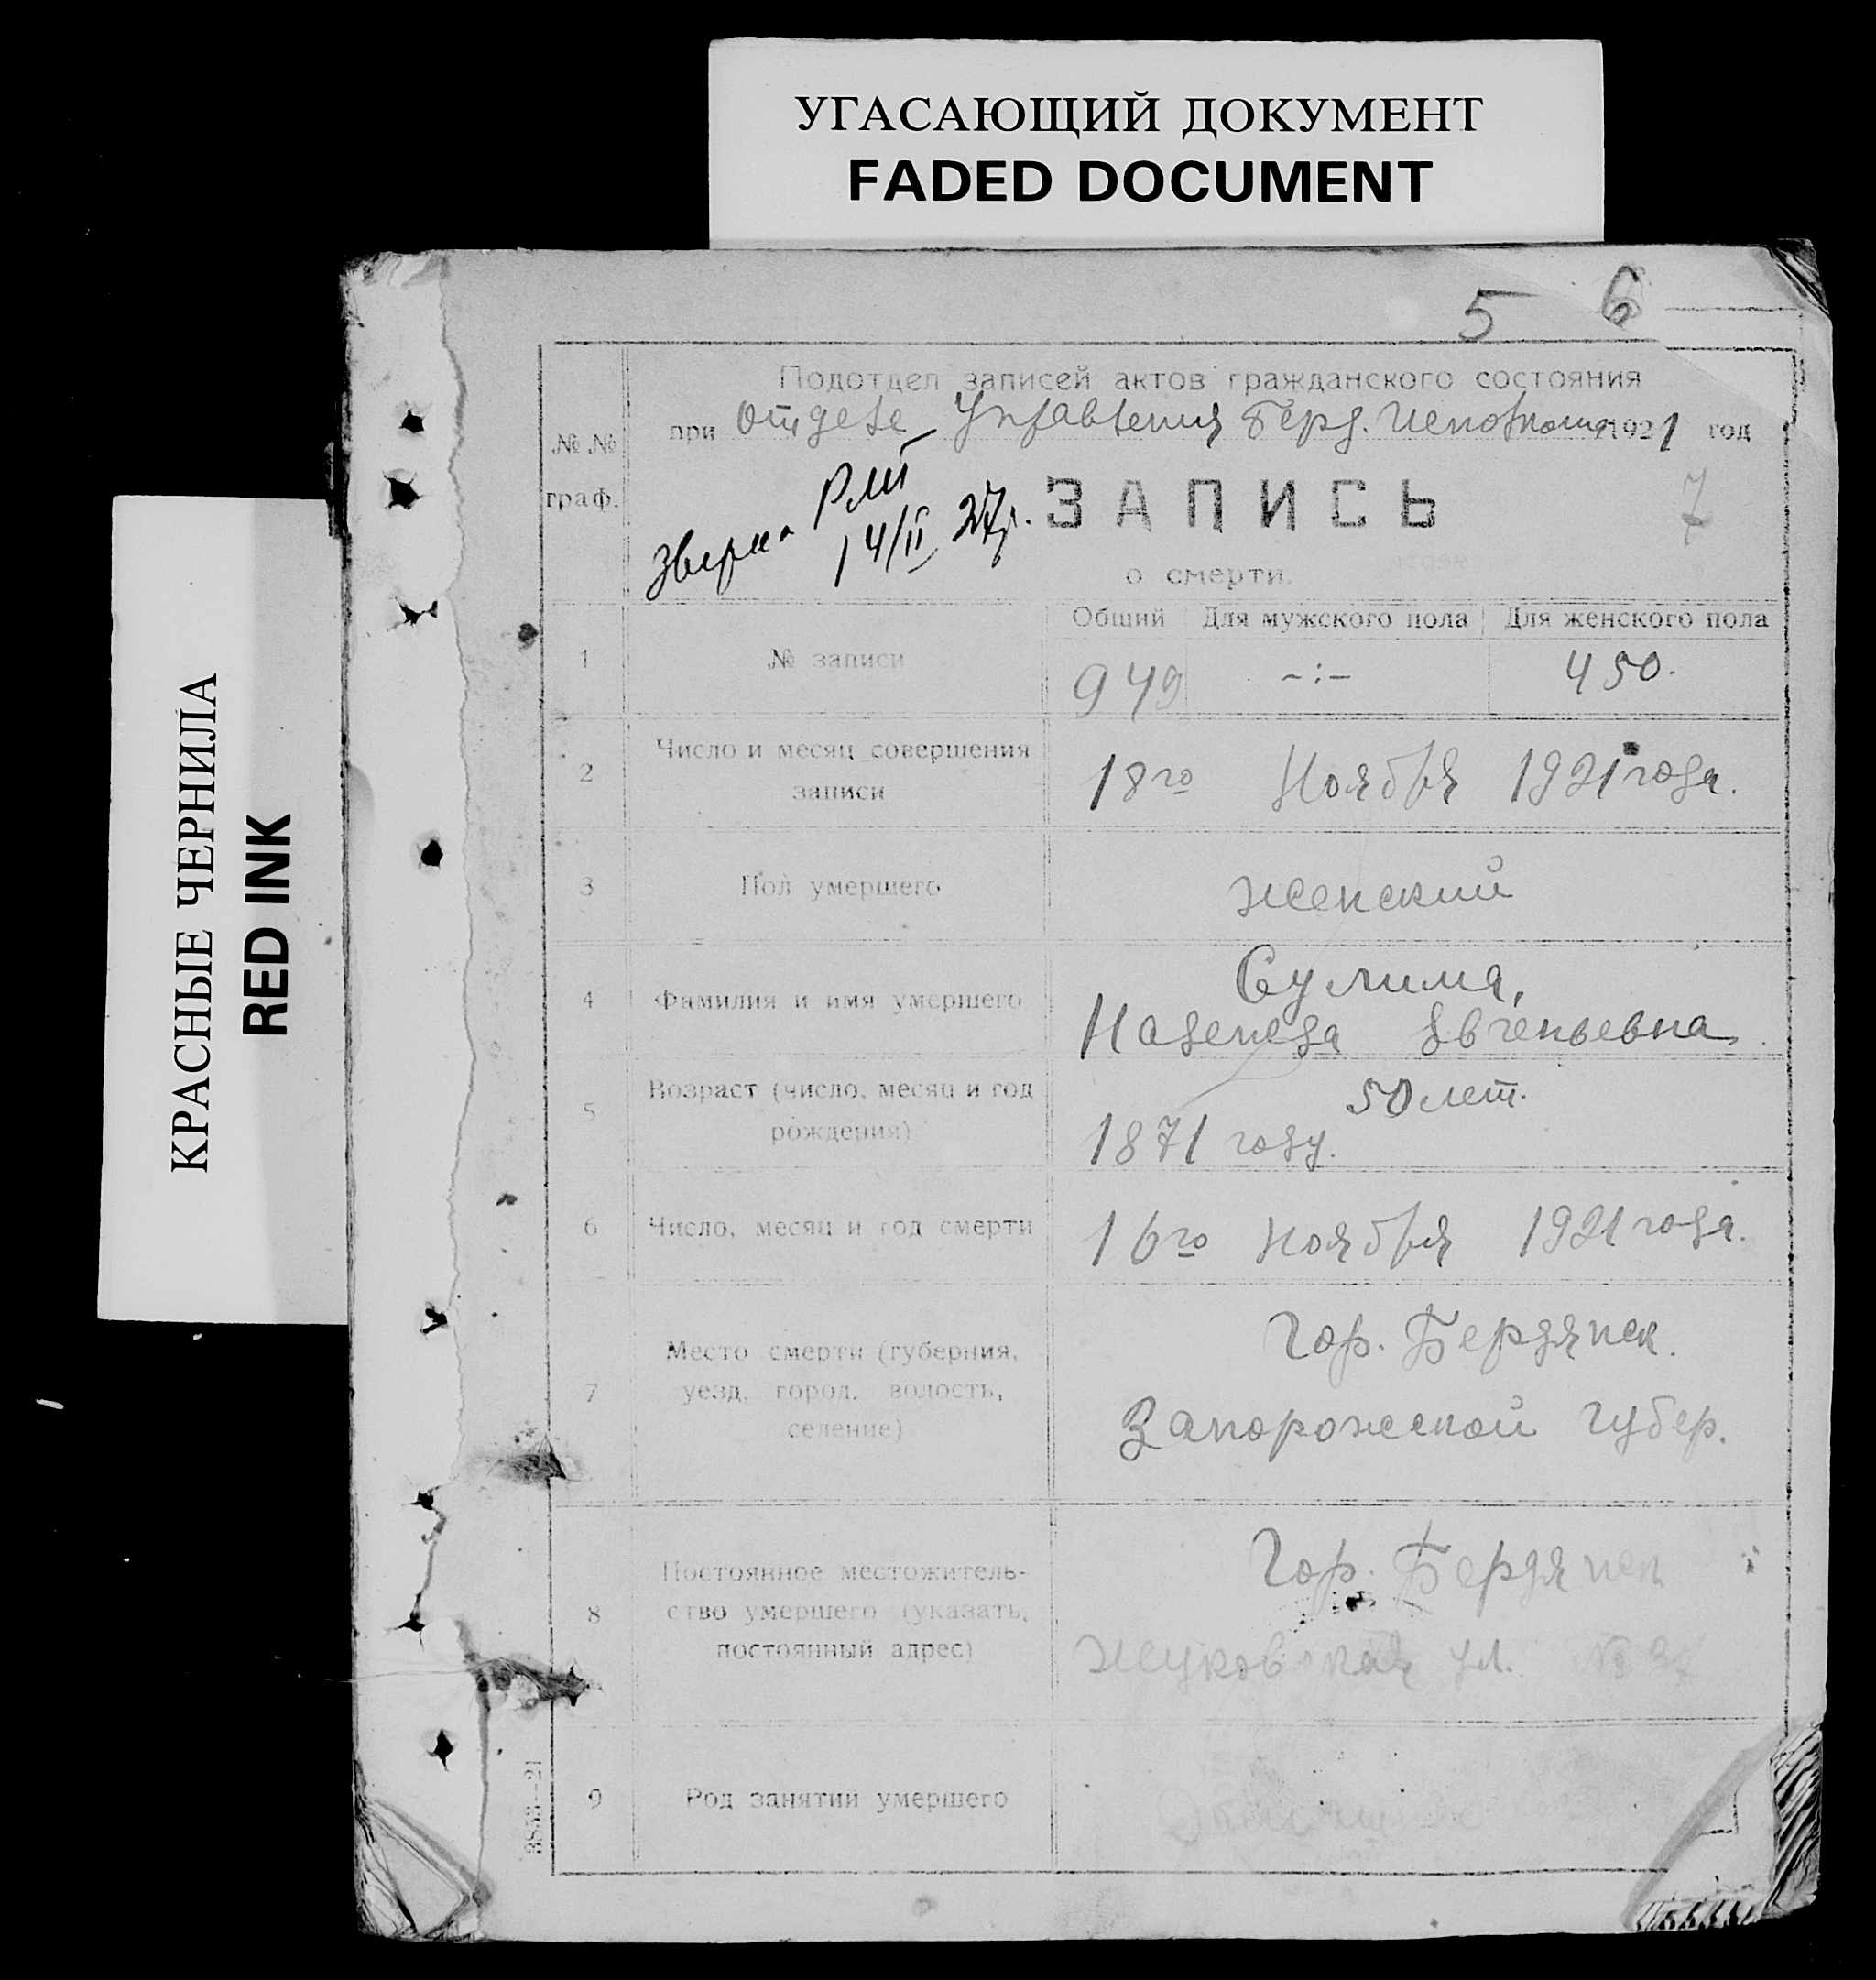 УГАСАЮЩИЙ ДОКУМЕНТ
FADED DOCUMENT
КРАСНЫЕ ЧЕРНИЛА
RED INK
5 6
Подотдел записей актов гражданского состояния
при Отделе Управления Берд. Исполкома 1921 год
№ №
граф.
14/II 27г.
ЗАПИСЬ
7
о смерти.
Общий Для мужского пола Для женского пола
1 № записи 949 -:- 450.
2 Число и месяц совершения
записи
18го Ноября 1921 года.
3 Пол умершего женский
4 Фамилия и имя умершего
Сулима,
Надежда Евгеньевна
5 Возраст (число, месяц и год
рождения)
50 лет.
1871 году.
6 Число, месяц и год смерти 16го ноября 1921 года.
7 Место смерти (губерния,
уезд, город, волость,
селение)
Гор. Бердянск.
Запорожской губер.
8 Постоянное местожитель-
ство умершего (указать,
постоянный адрес)
Гор. Бердянск
Жуковская ул. №
9 Род занятий умершего
3853—21